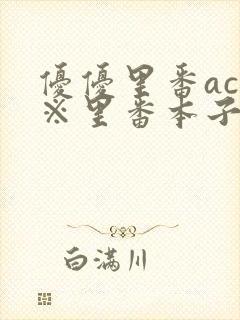 優優里番ac
※里番本子
白满川